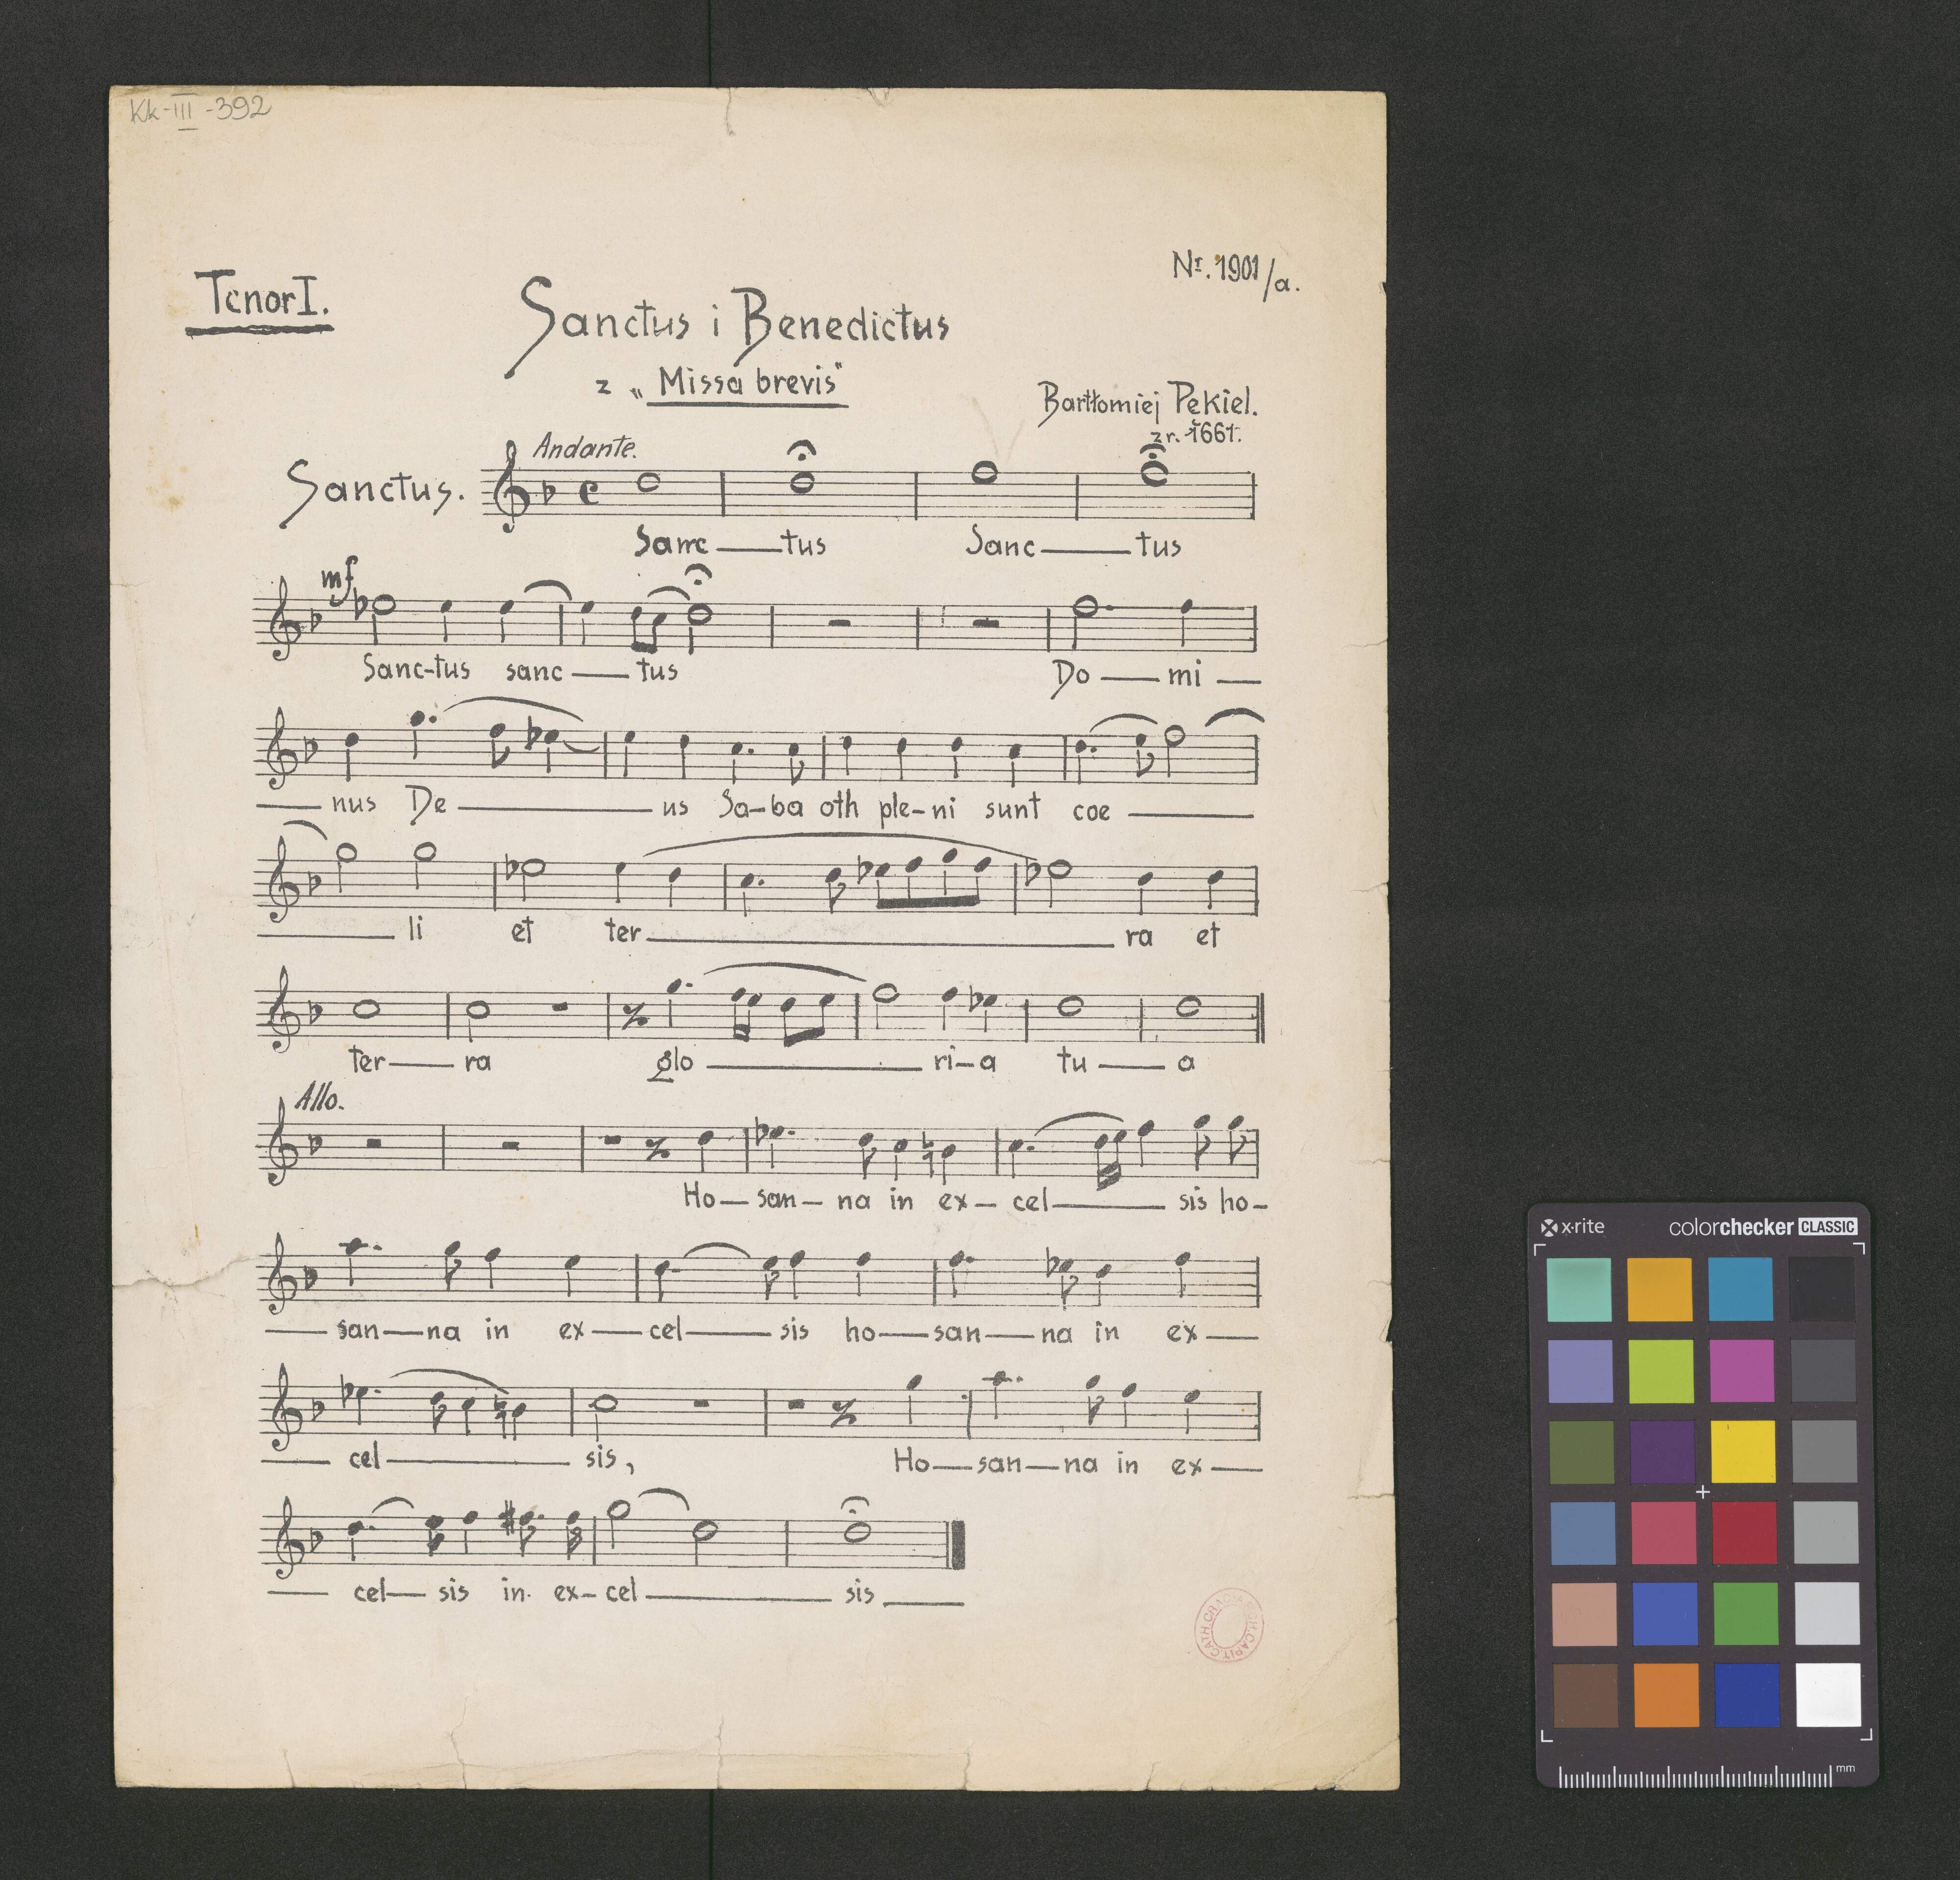 Kk-III-392
Nr. 1901/a.
Tenor I.
Sanctus i Benedictus
z „Missa brevis"
Bartłomiej Pękiel.
z r. 1661.
Andante.
Sanctus.
Sanc — tus Sanc — tus
mf
Sanc-tus sanc — tus Do — mi —
— nus De — us Sa-ba oth ple-ni sunt coe —
— li et ter — ra et
ter — ra glo — ri-a tu — a
Allo.
Ho — san — na in ex — cel — sis ho-
— san — na in ex — cel — sis ho — san — na in ex —
— cel — sis, Ho — san — na in ex —
— cel — sis in. ex — cel — sis —
x-rite colorchecker CLASSIC
mm